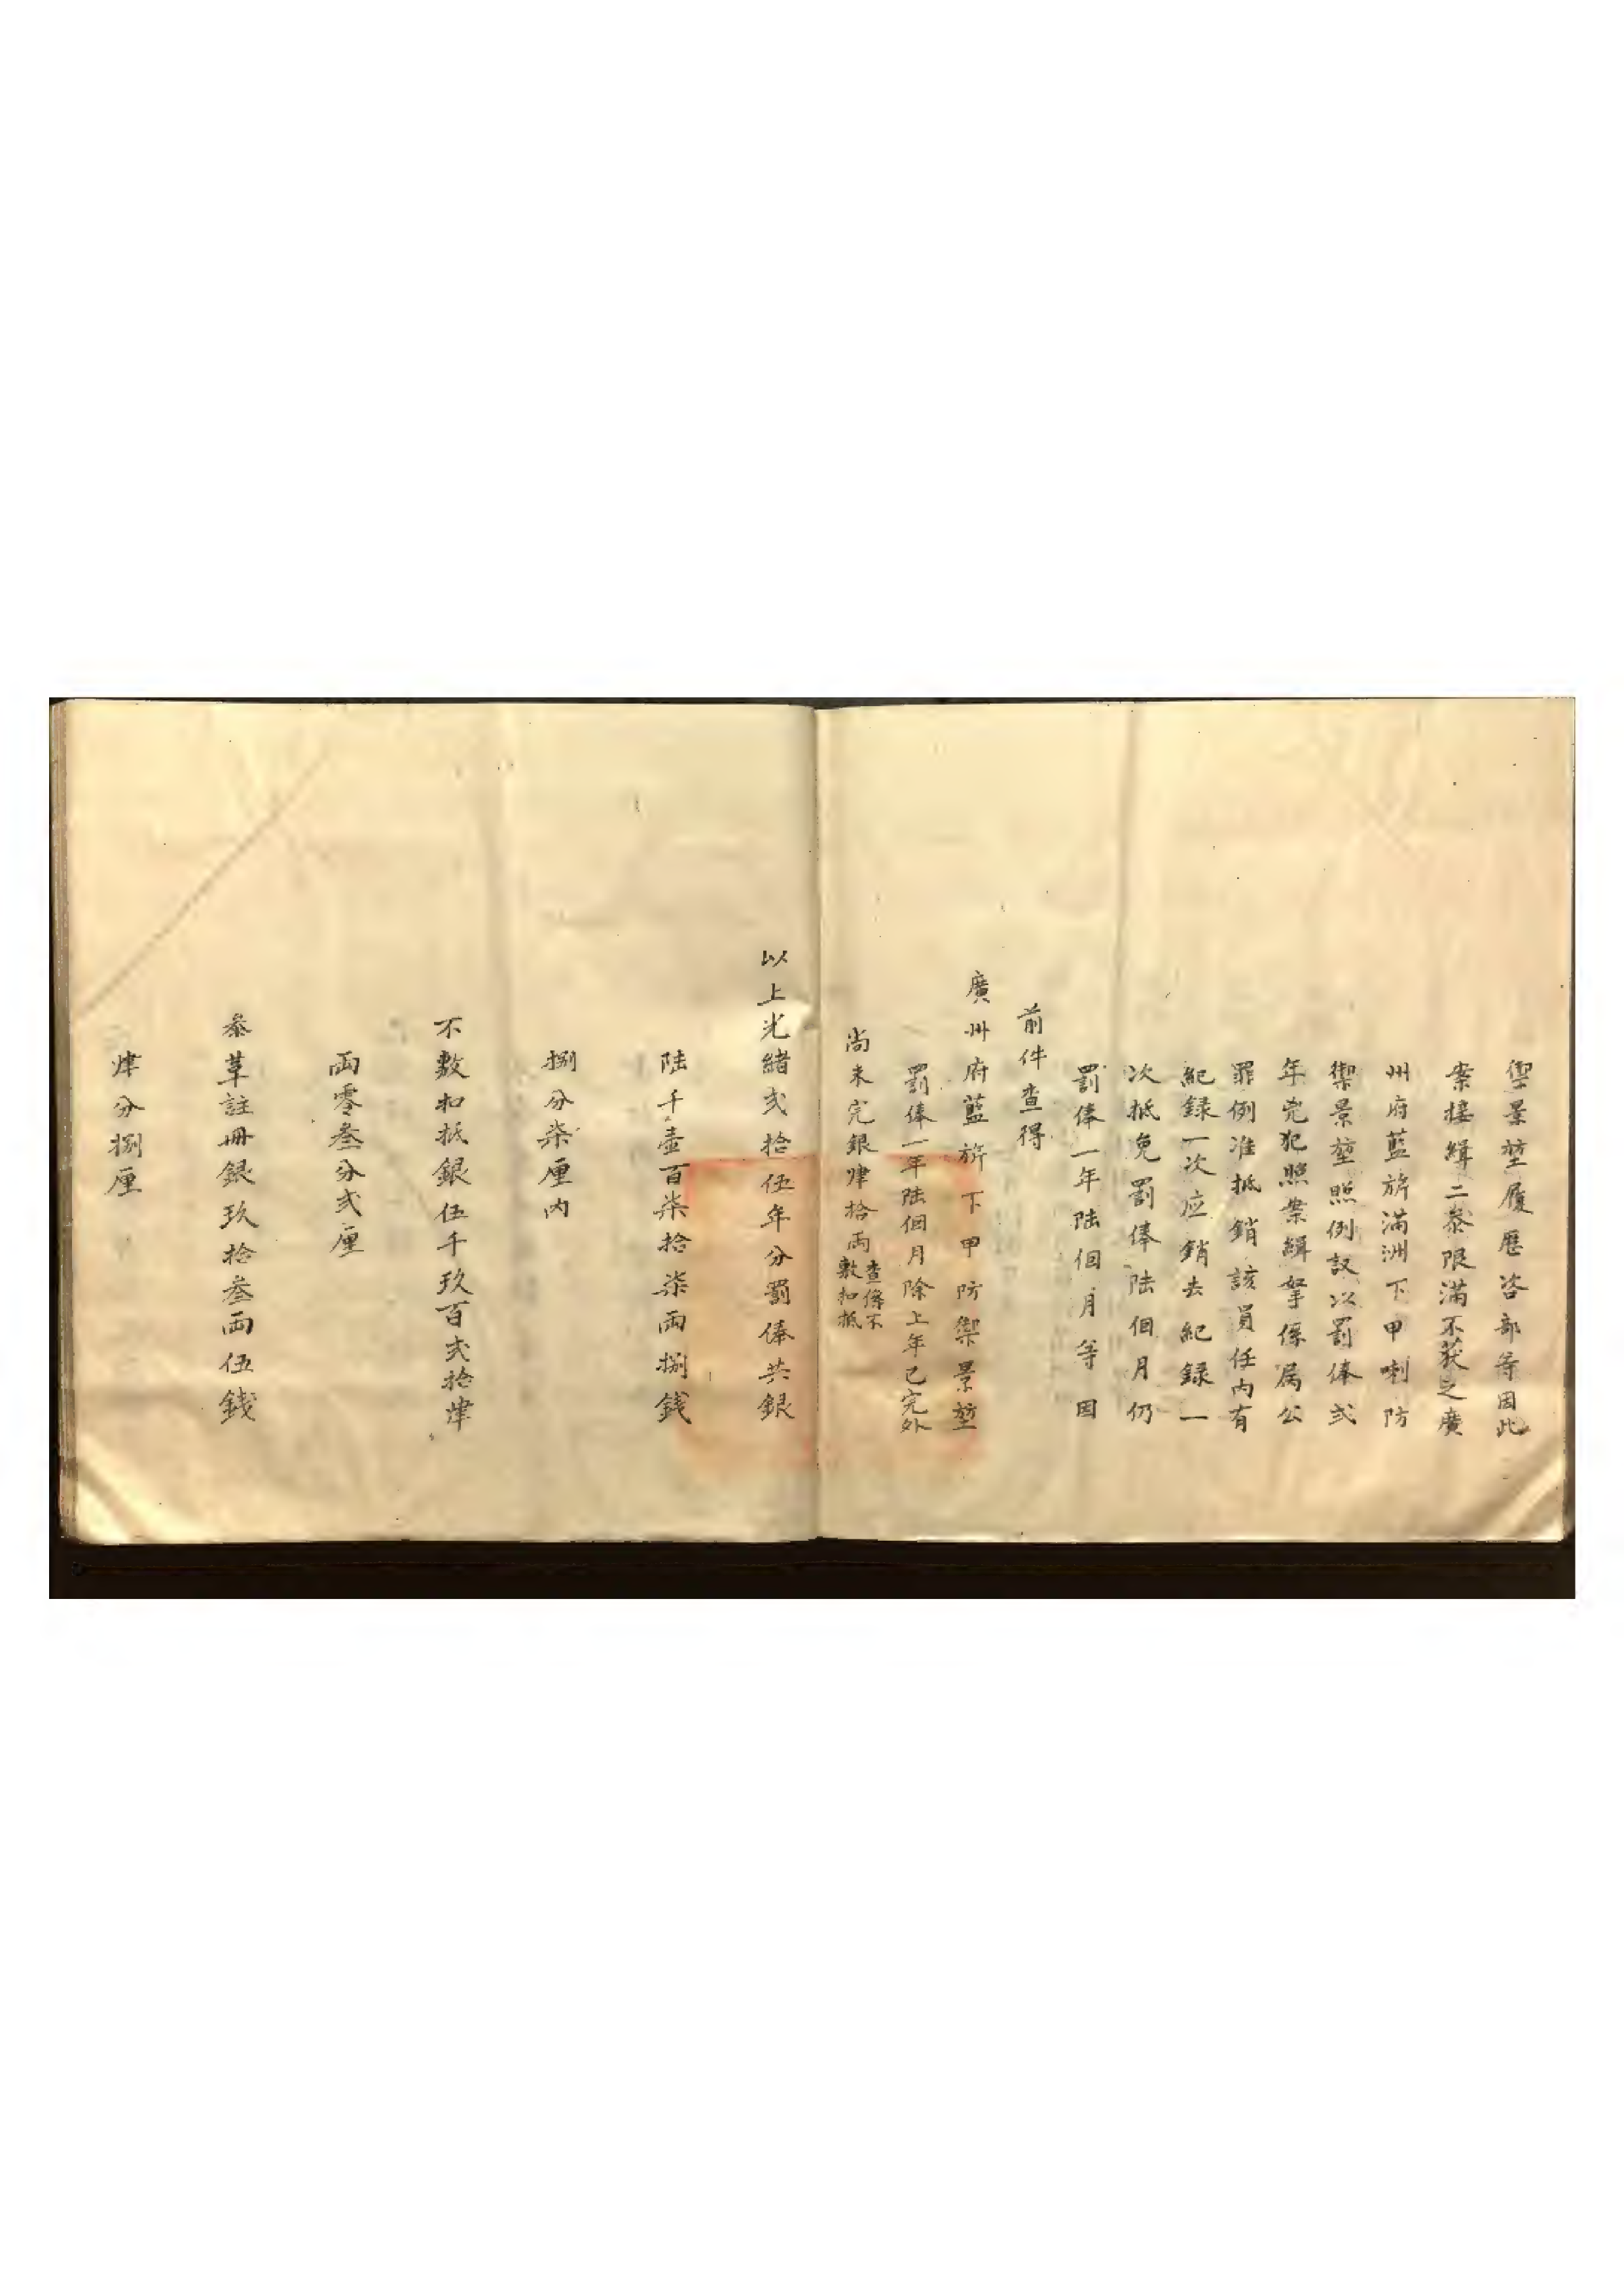 禦景堃履歷咨部等因此
案接緝二叅限滿不獲之廣
州府藍旂滿洲下甲喇防
禦景堃照例議以罰俸弍
年兇犯照案緝拏係属公
罪例准抵銷該員任内有
紀録一次应銷去紀録一
次抵免罰俸陸個月仍
罰俸一年陸個月等因
前件查得
廣州府藍旂下甲防禦景堃
罰俸一年陸個月除上年已完外
尚未完銀肆拾両查係不敷扣抵
以上光緒弍拾伍年分罰俸共銀
陸千壹百柒拾柒両捌銭
捌分柒厘内
不敷扣抵銀伍千玖百弍拾肆
両零叁分弍厘
叅革註冊銀玖拾叁両伍銭
肆分捌厘